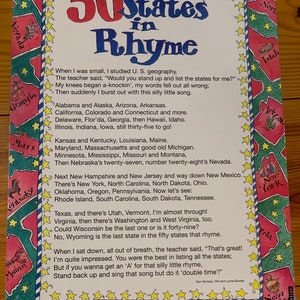 50 States
in
Rhyme
When I was small, I studied U. S. geography.
The teacher said, "Would you stand up and list the states for me?"
My knees began a-knockin', my words fell out all wrong;
Then suddenly I burst out with this silly little song.
Alabama and Alaska, Arizona, Arkansas.
California, Colorado and Connecticut and more.
Delaware, Flor'da, Georgia, then Hawaii, Idaho.
Illinois, Indiana, Iowa, still thirty-five to go!
Kansas and Kentucky, Louisiana, Maine.
Maryland, Massachusetts and good old Michigan.
Minnesota, Mississippi, Missouri and Montana,
Then Nebraska's twenty-seven, number twenty-eight's Nevada.
Next New Hampshire and New Jersey and way down New Mexico.
There's New York, North Carolina, North Dakota, Ohio.
Oklahoma, Oregon, Pennsylvania. Now let's see:
Rhode Island, South Carolina, South Dakota, Tennessee.
Texas, and there's Utah, Vermont, I'm almost through!
Virginia, then there's Washington and West Virginia, too.
Could Wisconsin be the last one or is it forty-nine?
No, Wyoming is the last state in the fifty states that rhyme.
When I sat down, all out of breath, the teacher said, "That's great!
I'm quite impressed. You were the best in listing all the states;
But if you wanna get an 'A' for that silly little rhyme,
Stand back up and sing that song but do it 'double time'!"
Mass
Maine